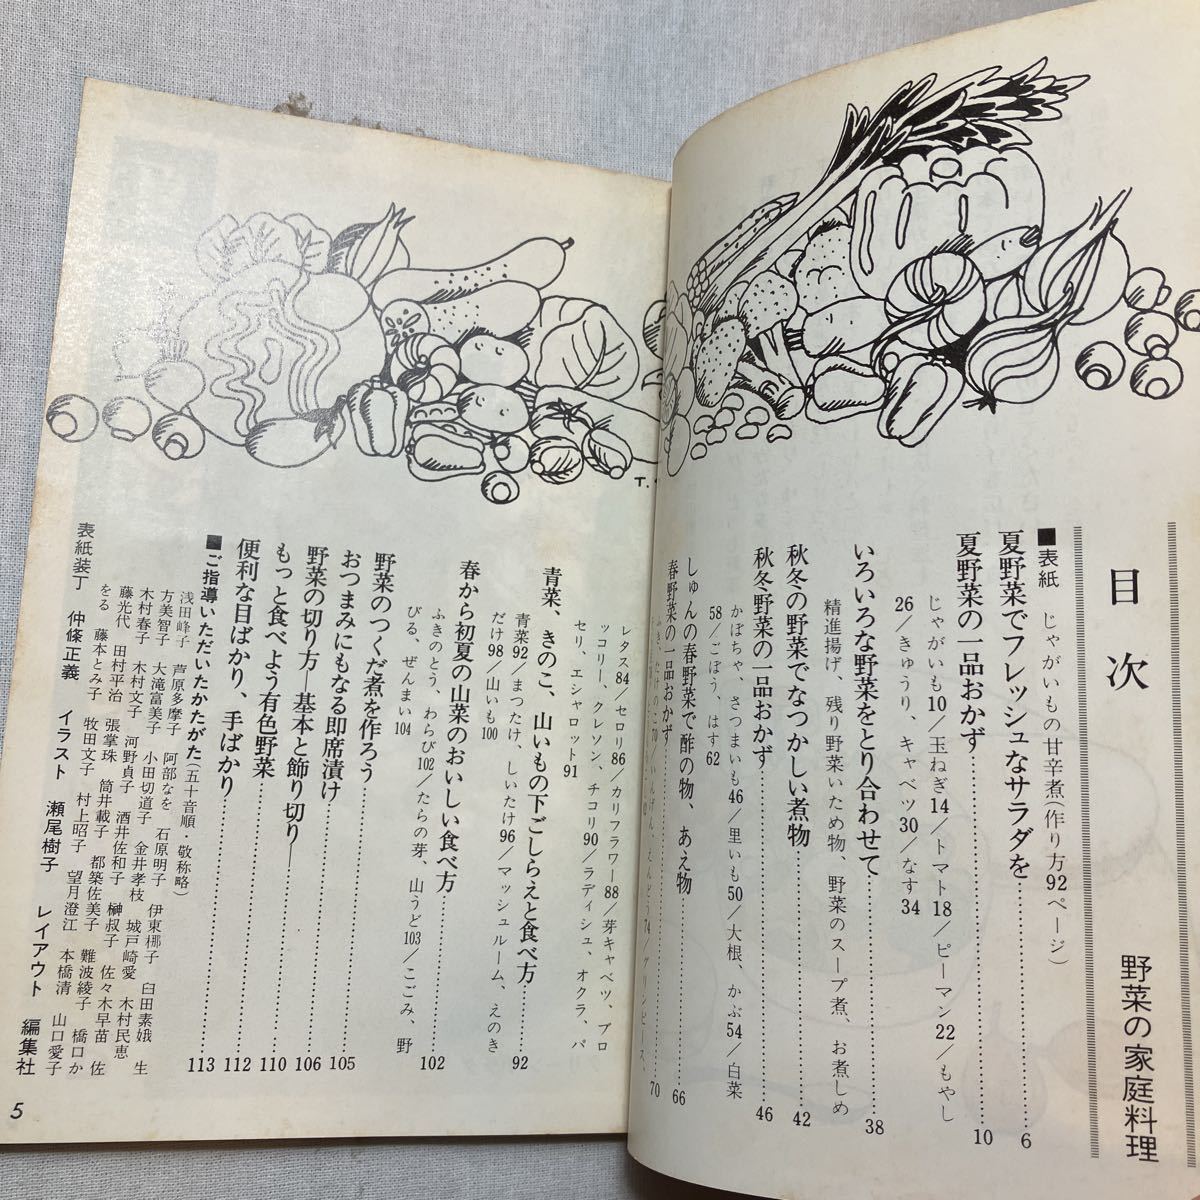 目次
野菜の家庭料理
■表紙 じゃがいもの甘辛煮(作り方92ページ)
夏野菜でフレッシュなサラダを……6
夏野菜の一品おかず……10
じゃがいも10／玉ねぎ14／トマト18／ピーマン22／もやし
26／きゅうり、キャベツ30／なす34
いろいろな野菜をとり合わせて……38
精進揚げ、残り野菜いため物、野菜のスープ煮、お煮しめ
秋冬の野菜でなつかしい煮物……42
秋冬野菜の一品おかず……46
かぼちゃ、さつまいも46／里いも50／大根、かぶ54／白菜
58／ごぼう、はす62
しゅんの春野菜で酢の物、あえ物……66
春野菜の一品おかず……70
ふき、たけのこ70／いんげん、えんどう74／グリンピース、
レタス84／セロリ86／カリフラワー88／芽キャベツ、ブロ
ッコリー、クレソン、チコリ90／ラディシュ、オクラ、パ
セリ、エシャロット91
青菜、きのこ、山いもの下ごしらえと食べ方……92
青菜92／まつたけ、しいたけ96／マッシュルーム、えのき
だけ98／山いも100
春から初夏の山菜のおいしい食べ方……102
ふきのとう、わらび102／たらの芽、山うど103／こごみ、野
びる、ぜんまい104
野菜のつくだ煮を作ろう
おつまみにもなる即席漬け……105
野菜の切り方—基本と飾り切り—……106
もっと食べよう有色野菜……110
便利な目ばかり、手ばかり……112
■ご指導いただいたかたがた(五十音順 敬称略)……113
浅田峰子 芦原多摩子 阿部なを 石原明子 伊東梛子 臼田素娥 生
方美智子 大滝富美子 小田切道子 金井孝枝 城戸崎愛 木村民恵
木村春子 木村文子 河野貞子 酒井佐和子 榊叔子 佐々木早苗 佐
藤光代 田村平治 張掌珠 筒井載子 都築佐美子 難波綾子 橋口か
をる 藤本とみ子 牧田文子 村上昭子 望月澄江 本橋清 山口愛子
表紙装丁 仲條正義 イラスト 瀬尾樹子 レイアウト 編集社
5